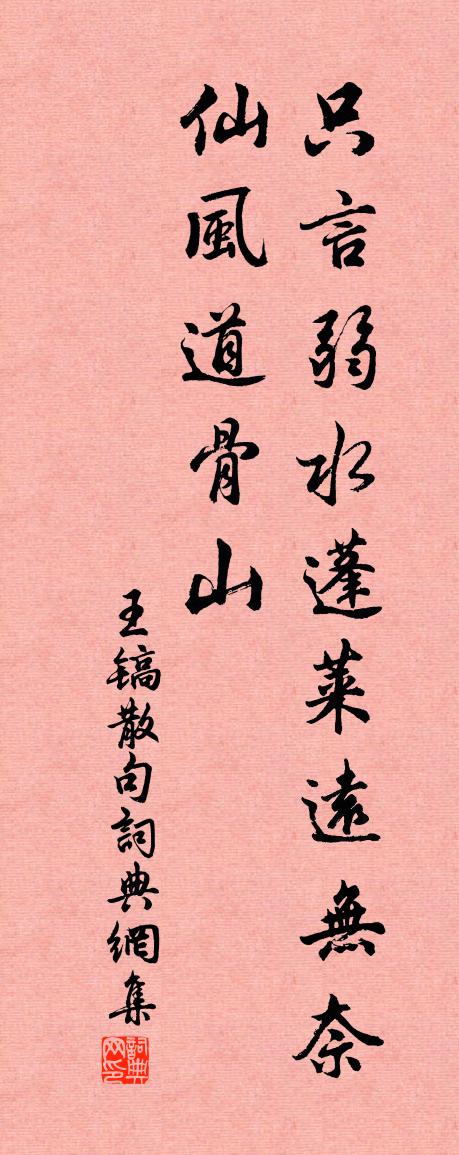 只言弱水蓬萊遠無奈
仙風道骨山
王镐散句詞典網集
詞典网印